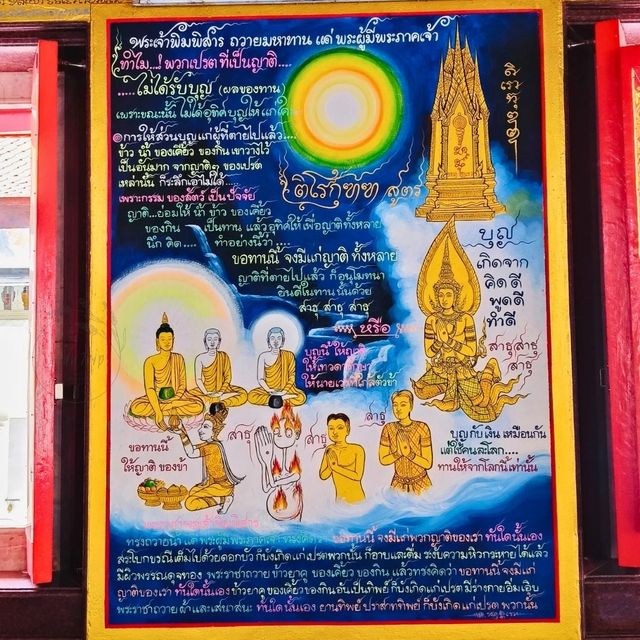 พระเจ้าพิมพิสาร ถวายมหาทาน แด่ พระผู้มีพระภาคเจ้า
ทำไม...! พวกเปรต ที่เป็นญาติ....
.....ไม่ได้รับบุญ (ผลของทาน)
เพราะขณะนั้น ไม่ได้อุทิศบุญให้ แก่ใคร
การให้ส่วนบุญ แก่ผู้ที่ตายไปแล้ว....
ข้าว น้ำ ของเคี้ยว ของกิน เขาวางไว้
เป็นอันมาก จากญาติๆ ของเปรต
เหล่านั้น ก็ระลึกเอาไม่ได้...
เพราะกรรม ของสัตว์ เป็นปัจจัย
ติโรกุฑฑ สูตร
ญาติ...ยอมให้ น้ำ ข้าว ของเคี้ยว
ของกิน เป็นทาน แล้วอุทิศให้ เพื่อญาติทั้งหลาย
นึก คิด.... ทำอย่างนี้ว่า ....
ขอทานนี้ จงมีแก่ญาติ ทั้งหลาย
ญาติที่ตายไปแล้ว ก็อนุโมทนา
ยินดีในทาน นั้นด้วย
สาธุ สาธุ สาธุ
หรือ
บุญนี้ ให้ญาติ
ให้เทวดารักษา
ให้นายเวรที่ใกล้ตัวข้า
บุญ
เกิดจาก
คิดดี
พูดดี
ทำดี
สาธุ สาธุ
สาธุ
ขอทานนี้
ให้ญาติ ของข้า
สาธุ
สาธุ
สาธุ
บุญ กับ เงิน เหมือนกัน
แต่ใช้คนละโลก....
ทานให้จากโลกนี้เท่านั้น
ทรงถวายน้ำ แด่ พระผู้มีพระภาคเจ้า ขอทานนี้ จงมีแก่พวกญาติของเรา ทันใดนั้นเอง
สระโบกขรณีเต็มไปด้วยดอกบัว ก็บังเกิดแก่เปรตพวกนั้น ก็อาบและดื่ม ระงับความหิวกระหายได้แล้ว
มีผิวพรรณดุจทอง พระราชาถวาย ข้าวยาคู ของเคี้ยว ของกิน แล้วทรงคิดว่า ขอทานนี้ จงมีแก่
ญาติของเรา ทันใดนั้นเอง ข้าวยาคู ของเคี้ยวของกินอันเป็นทิพย์ ก็บังเกิดแก่เปรต มีร่างกายอิ่มเอิบ
พระราชาถวาย ผ้าและเสนาสนะ ทันใดนั้นเอง ยานทิพย์ ปราสาททิพย์ ก็บังเกิดแก่เปรต พวกนั้น